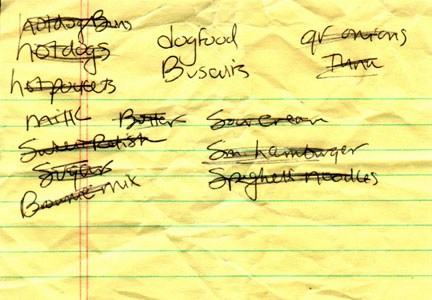 hotdog Buns
hotdogs
hotpockets
milk Butter
Sweet Relish
Sugar
Brownie mix
dogfood
Biscuits
gr onions
Tuna
Sour Cream
Sm hamburger
Spaghetti noodles